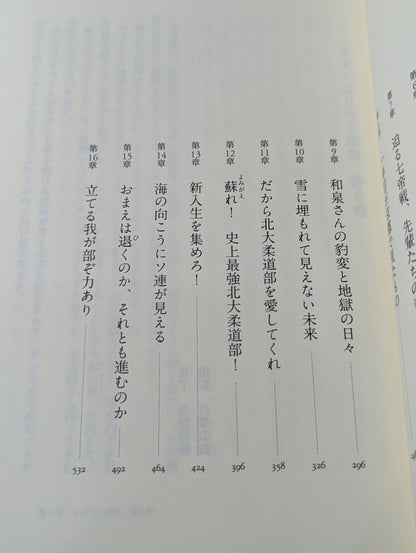 迫る七帝戦、先輩たちの
第9章 和泉さんの豹変と地獄の日々 296
第10章 雪に埋もれて見えない未来 326
第11章 だから北大柔道部を愛してくれ 358
第12章 蘇れ!(よみがえ) 史上最強北大柔道部! 396
第13章 新入生を集めろ! 424
第14章 海の向こうにソ連が見える 464
第15章 おまえは退(ひ)くのか、それとも進むのか 492
第16章 立てる我が部ぞ力あり 532